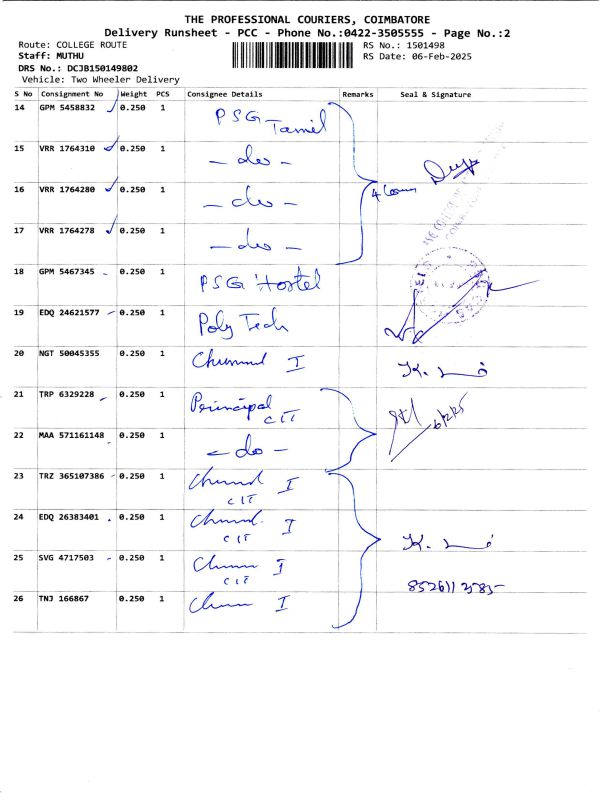 THE PROFESSIONAL COURIERS, COIMBATORE
Delivery Runsheet - PCC - Phone No.:0422-3505555 - Page No.:2
Route: COLLEGE ROUTE
Staff: MUTHU
DRS No.: DCJB150149802
Vehicle: Two Wheeler Delivery
RS No.: 1501498
RS Date: 06-Feb-2025
S No Consignment No Weight PCS Consignee Details Remarks Seal & Signature
14 GPM 5458832 0.250 1 PSG Tamil
15 VRR 1764310 0.250 1 - do -
16 VRR 1764280 0.250 1 - do -
17 VRR 1764278 0.250 1 - do -
18 GPM 5467345 0.250 1 PSG Hostel
19 EDQ 24621577 0.250 1 Poly Tech
20 NGT 50045355 0.250 1 I
21 TRP 6329228 0.250 1 Principal CIT 6/2/25
22 MAA 571161148 0.250 1 - do -
23 TRZ 365107386 0.250 1 I CIT
24 EDQ 26383401 0.250 1 I CIT
25 SVG 4717503 0.250 1 I CIT
26 TNJ 166867 0.250 1 I